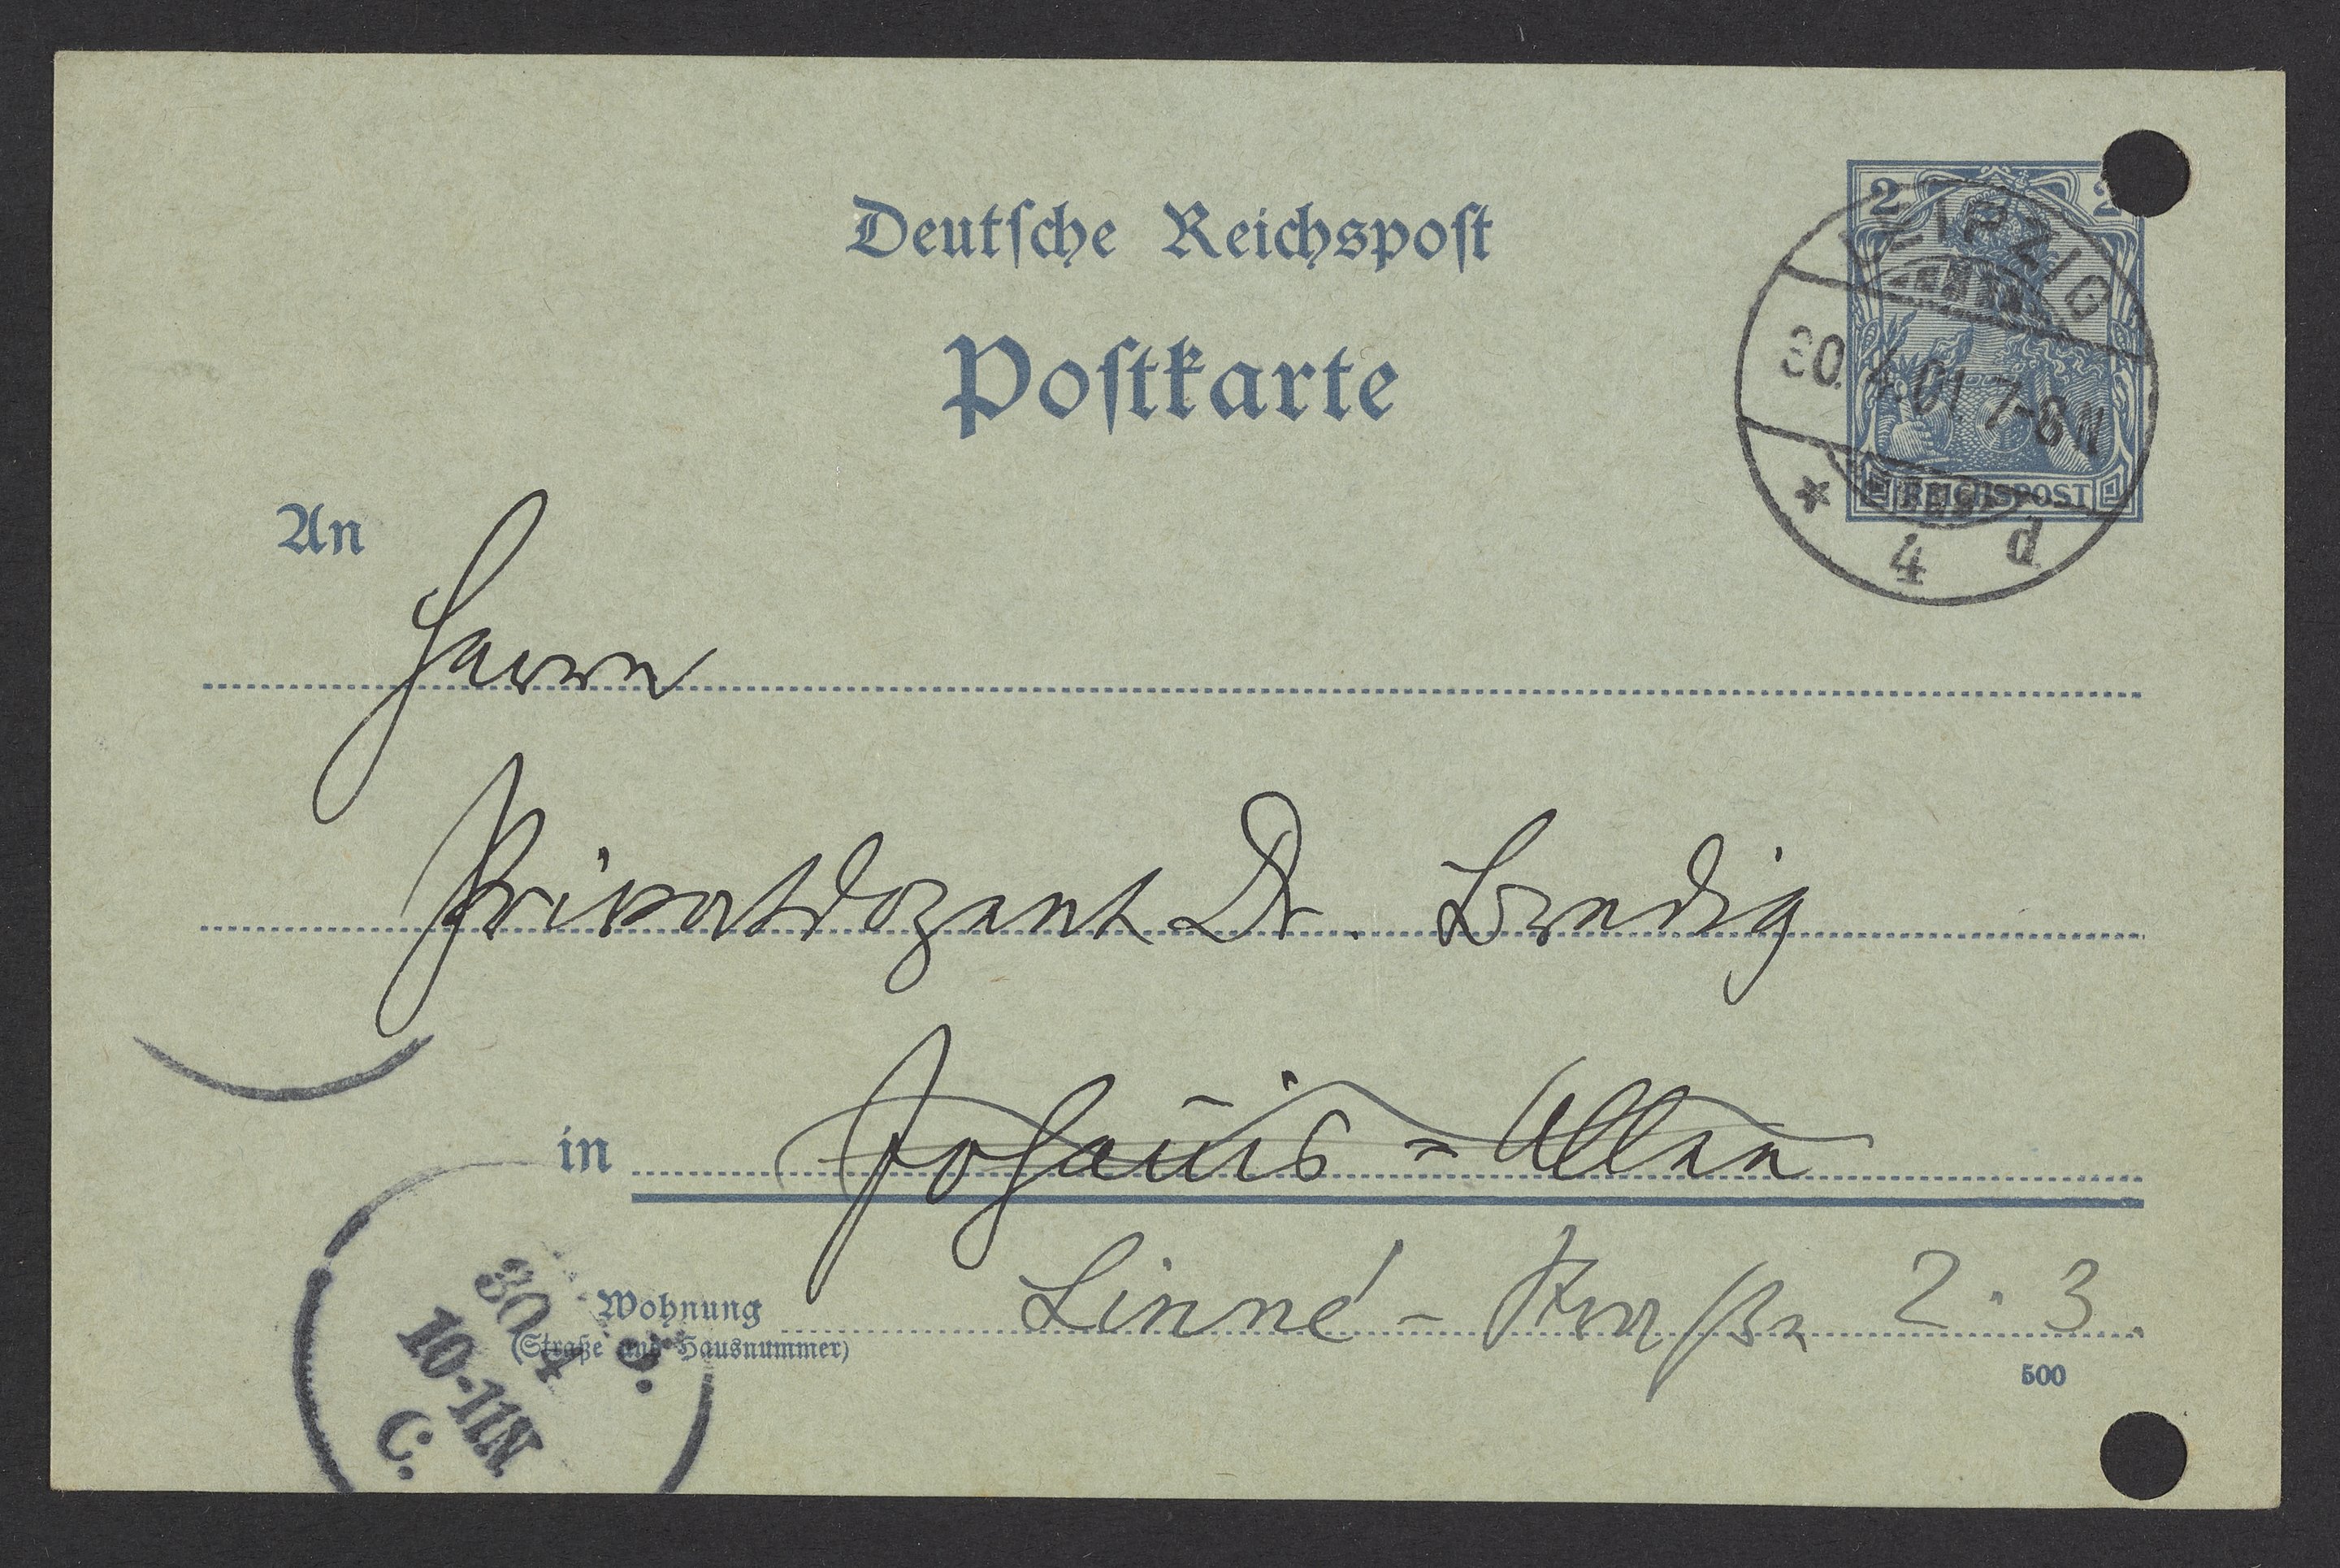 Deutsche Reichspost
Postkarte
2 2
REICHSPOST
LEIPZIG
30.4.01. 7-8 N
* 4 d.
An
Herrn
Privatdozent Dr. Bredig
in Johan̄is = Allee
Wohnung
(Straße und Hausnummer)
Linné - Straße 2. 3.
500
30 4
10-11N
C.